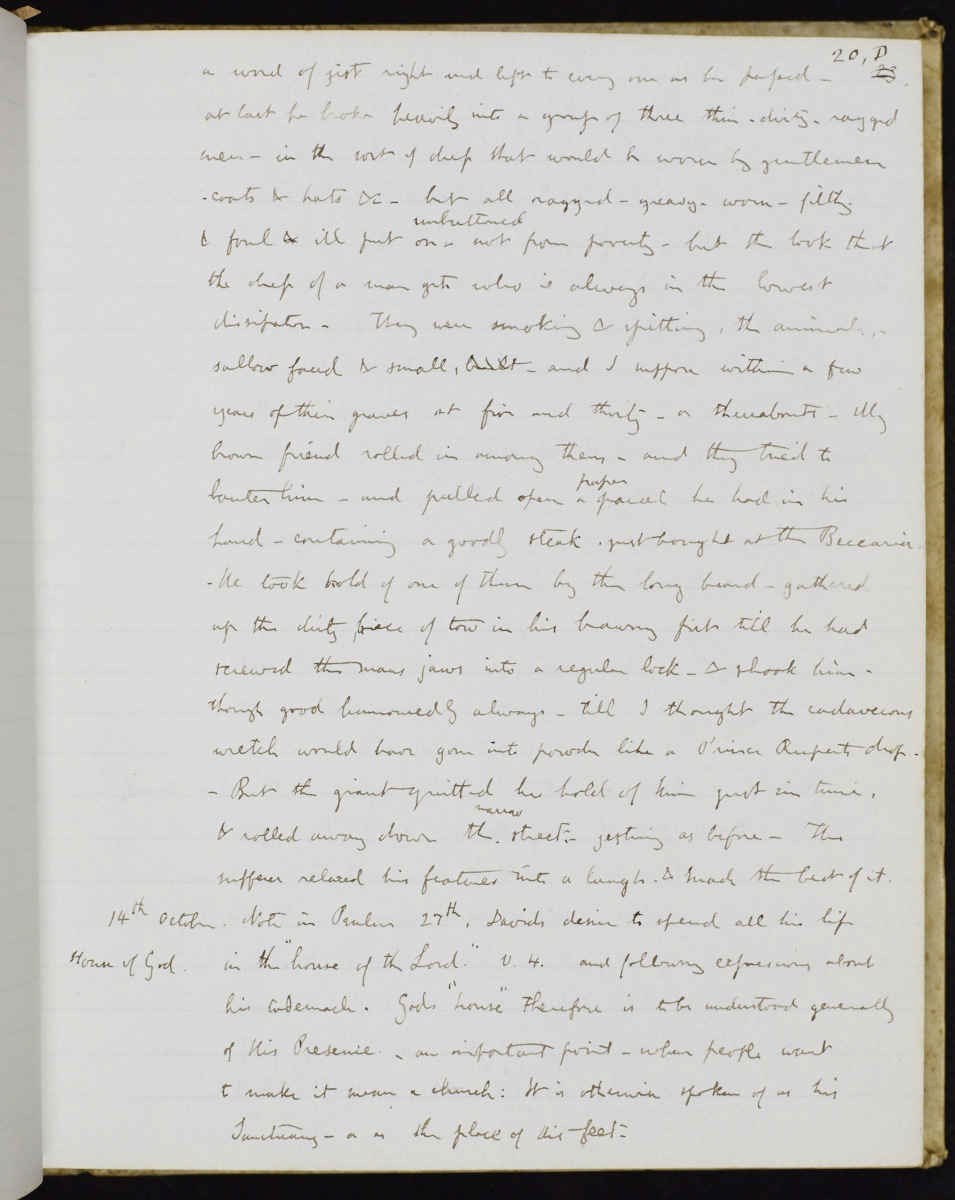 20, D
23.
a word of jest right and left to every one as he passed -
at last he broke heavily into a group of three thin - dirty - ragged
men - in the sort of dress that would be worn by gentlemen
- coats & hats &c - but all ragged - greasy - worn - filthy
unbuttoned
& foul & ill put on - not from poverty - but the look that
the dress of a man gets who is always in the lowest
dissipation - They were smoking & spitting, the animals, -
sallow faced & small, - and I suppose within a few
years of their graves at five and thirty - or thereabouts - My
brown friend rolled in among them - and they tried to
paper
banter him - and pulled open a parcel he had in his
hand - containing a goodly steak . just bought at the Beccaria.
- He took hold of one of them by the long beard - gathered
up the dirty piece of tow in his brawny fist till he had
screwed the mans jaws into a regular lock - & shook him -
though good humouredly always - till I thought the cadaverous
wretch would have gone into powder like a Prince Ruperts drop -
- But the giant quitted his hold of him just in time,
narrow
& rolled away down the street - jesting as before - The
sufferer relaxed his features into a laugh - & made the best of it.
14th October. Note in Psalm 27th, Davids desire to spend all his life
House of God. in the "house of the Lord." V. 4. and following expressions about
his tabernacle. Gods "house" therefore is to be understood generally
of His Presence - an important point - when people want
to make it mean a church: It is otherwise spoken of as his
Sanctuary - or as the place of his feet -